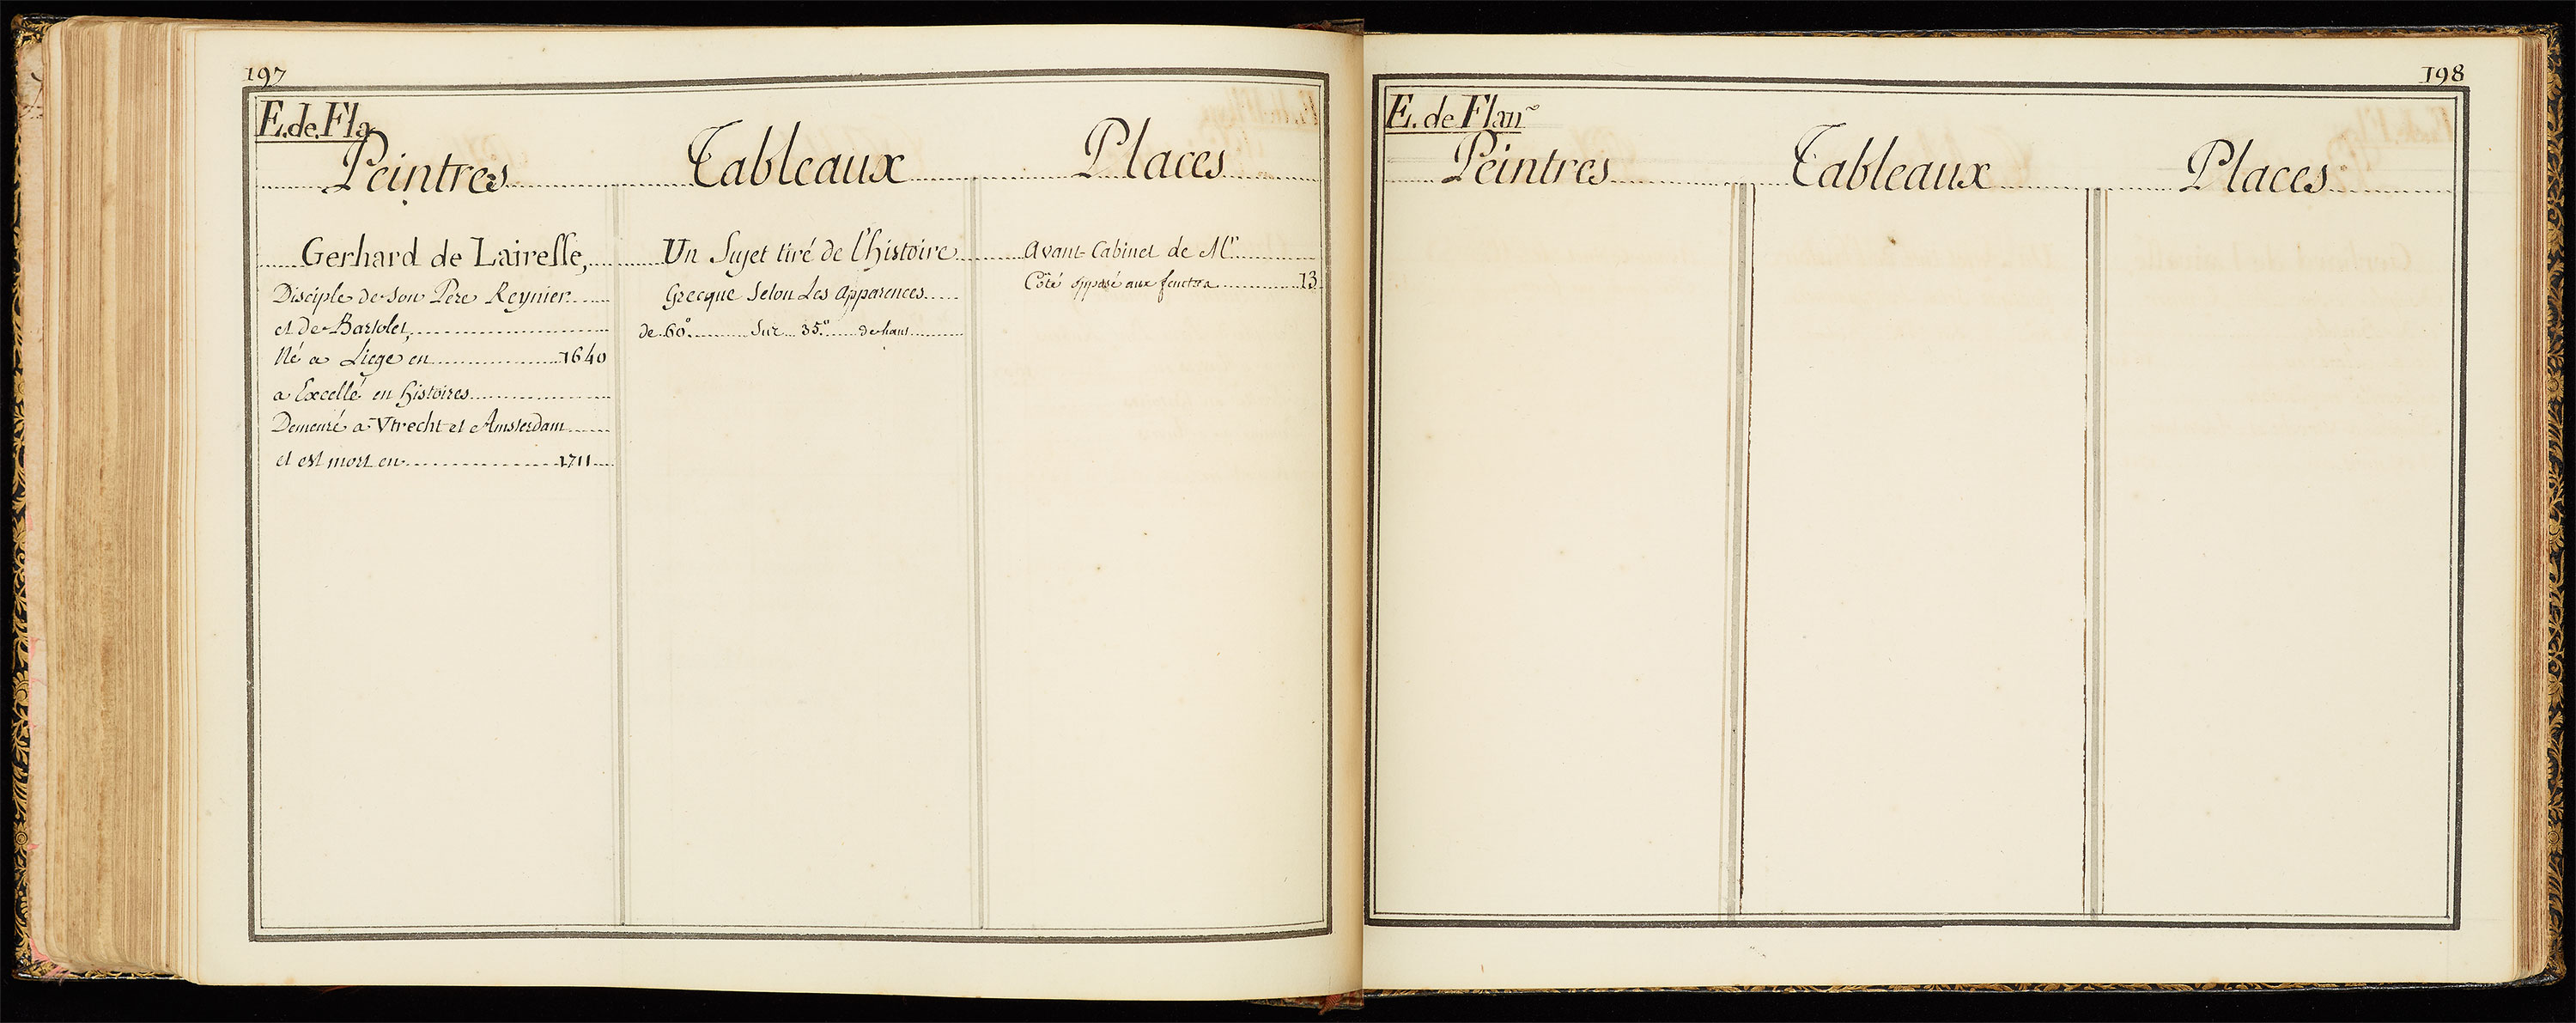 197
E. de. Fla
Peintres Tableaux Places
Gerhard de Lairesse,
Disciple de son Pere Reynier
et de Bartolet,
Né a Liege en 1640
a Excellé en histoires
Demeuré a Vtrecht et Amsterdam
et est mort en 1711
Un Sujet tiré de l'histoire
Grecque Selon Les apparences
de 60° Sur 35." de haut
Avant-Cabinet de Mr
Côté opposé aux fenetres 13
198
E. de Flan~
Peintres Tableaux Places